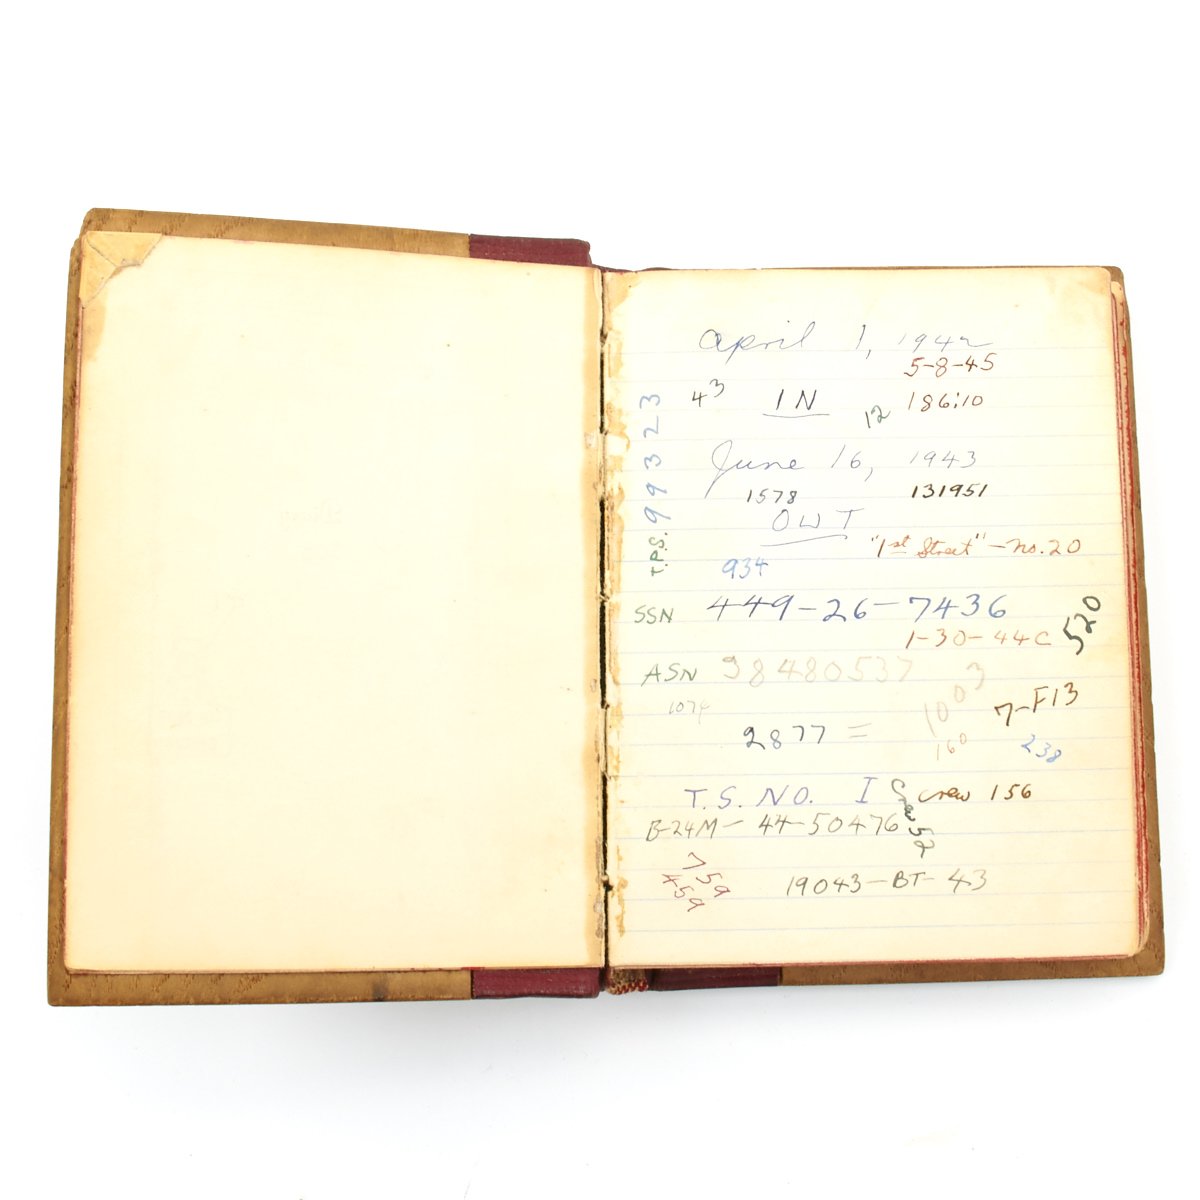 April 1, 1942
5-8-45
43 IN 12 186:10
June 16, 1943
1578 131951
OWT
"1st Street" - no. 20
T.P.S. 993 23
934
SSN 449-26-7436
1-30-44C
520
ASN 38480537
1003
2877 =
160
7-F13
238
T.S. NO. I crew 156
crew 52
B-24M - 44-50476
75a
45a
19043-BT-43